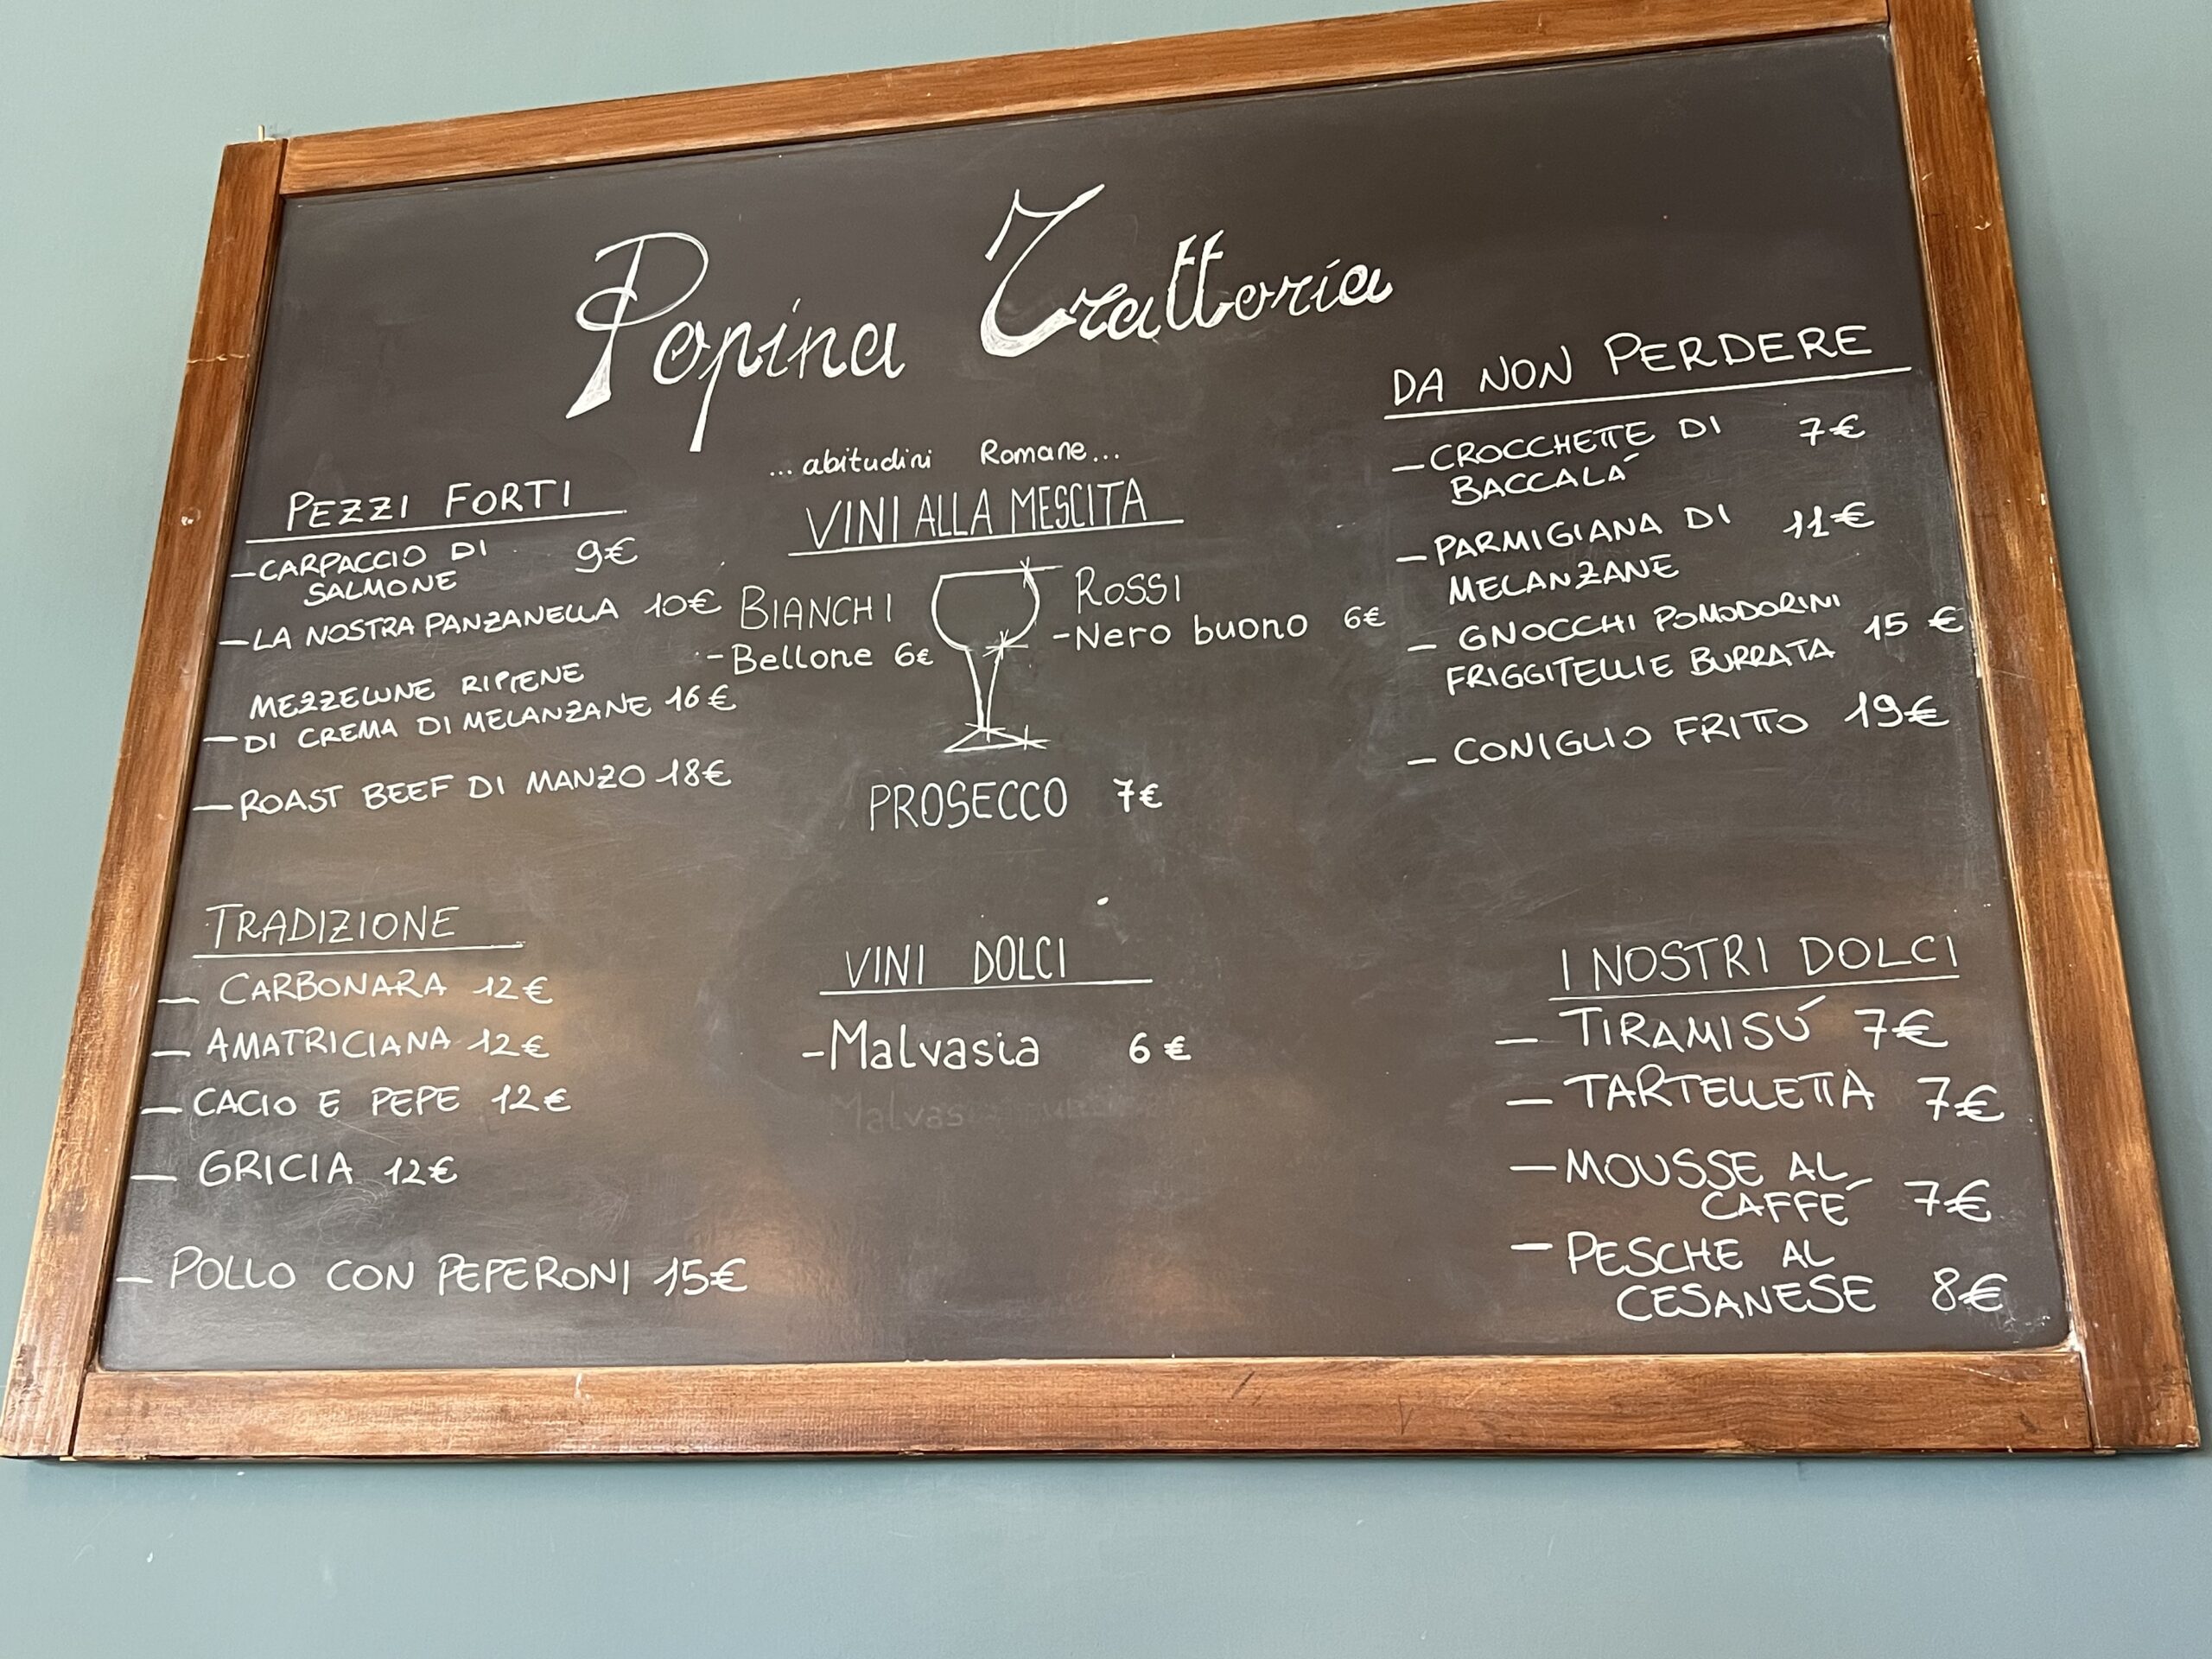 Popina Trattoria
...abitudini Romane...
PEZZI FORTI
–CARPACCIO DI 9€
SALMONE
–LA NOSTRA PANZANELLA 10€
MEZZELUNE RIPIENE
–DI CREMA DI MELANZANE 16€
–ROAST BEEF DI MANZO 18€
TRADIZIONE
– CARBONARA 12€
– AMATRICIANA 12€
– CACIO E PEPE 12€
– GRICIA 12€
– POLLO CON PEPERONI 15€
VINI ALLA MESCITA
BIANCHI
-Bellone 6€
ROSSI
-Nero buono 6€
PROSECCO 7€
VINI DOLCI
-Malvasia 6€
Malvasi
DA NON PERDERE
–CROCCHETTE DI 7€
BACCALÁ
–PARMIGIANA DI 11€
MELANZANE
– GNOCCHI POMODORINI
FRIGGITELLI E BURRATA 15 €
– CONIGLIO FRITTO 19€
I NOSTRI DOLCI
– TIRAMISÚ 7€
– TARTELLETTA 7€
–MOUSSE AL
CAFFÉ 7€
–PESCHE AL
CESANESE 8€